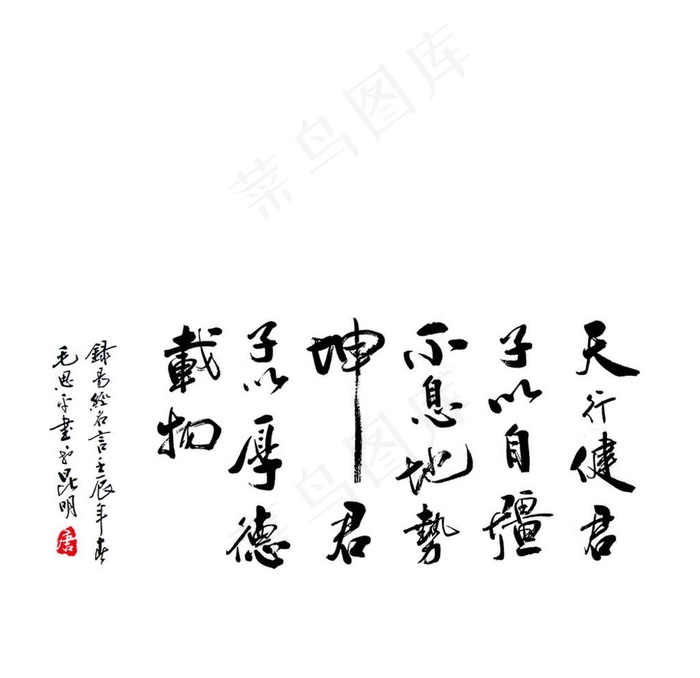 天行健君
子以自彊
不息地勢
坤君
子以厚德
載物
録易經名言壬辰年春
毛思平書于昆明
菜鸟图库